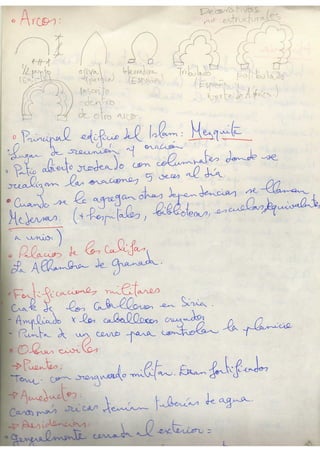 • Arcos:
Decorativos
no estructurales
1/2 punto
ojiva
herradura
(España)
trilobulado
(España y
norte de África)
polilobulado
Arco inscrito
dentro
de otro arco.
• Principal edificio del Islam: Mezquita
Lugar de reunión y oración
• Patio abierto rodeado con columnatas donde se
realizan las oraciones 5 veces al día.
• Cuando se le agregan otras dependencias se llaman
Medersas. (+ hospitales, bibliotecas, escuelas equivalentes
a univ.)
• Palacios de los Califas
La Alhambra de Granada.
• Fortificaciones militares
Crak de los Caballeros en Siria.
- Ampliado x los caballeros cruzados
- Punta de un cerro para controlar la planicie
• Obras civiles
→ Puentes:
Torre: con resguardo militar. Eran fortificados
→ Aqueductos:
Casas más ricas tenían tuberías de agua.
→ Residencias:
• generalmente cerrada al exterior =